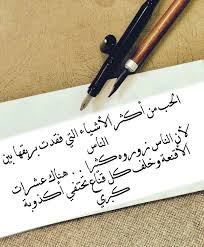 الحب من أكثر الأشياء التي فقدت بريقها بين
الناس
لأن الناس زوروه كثيرا .. هناك عشرات
الأقنعة وخلف كل قناع تختفي أكذوبة
كبرى